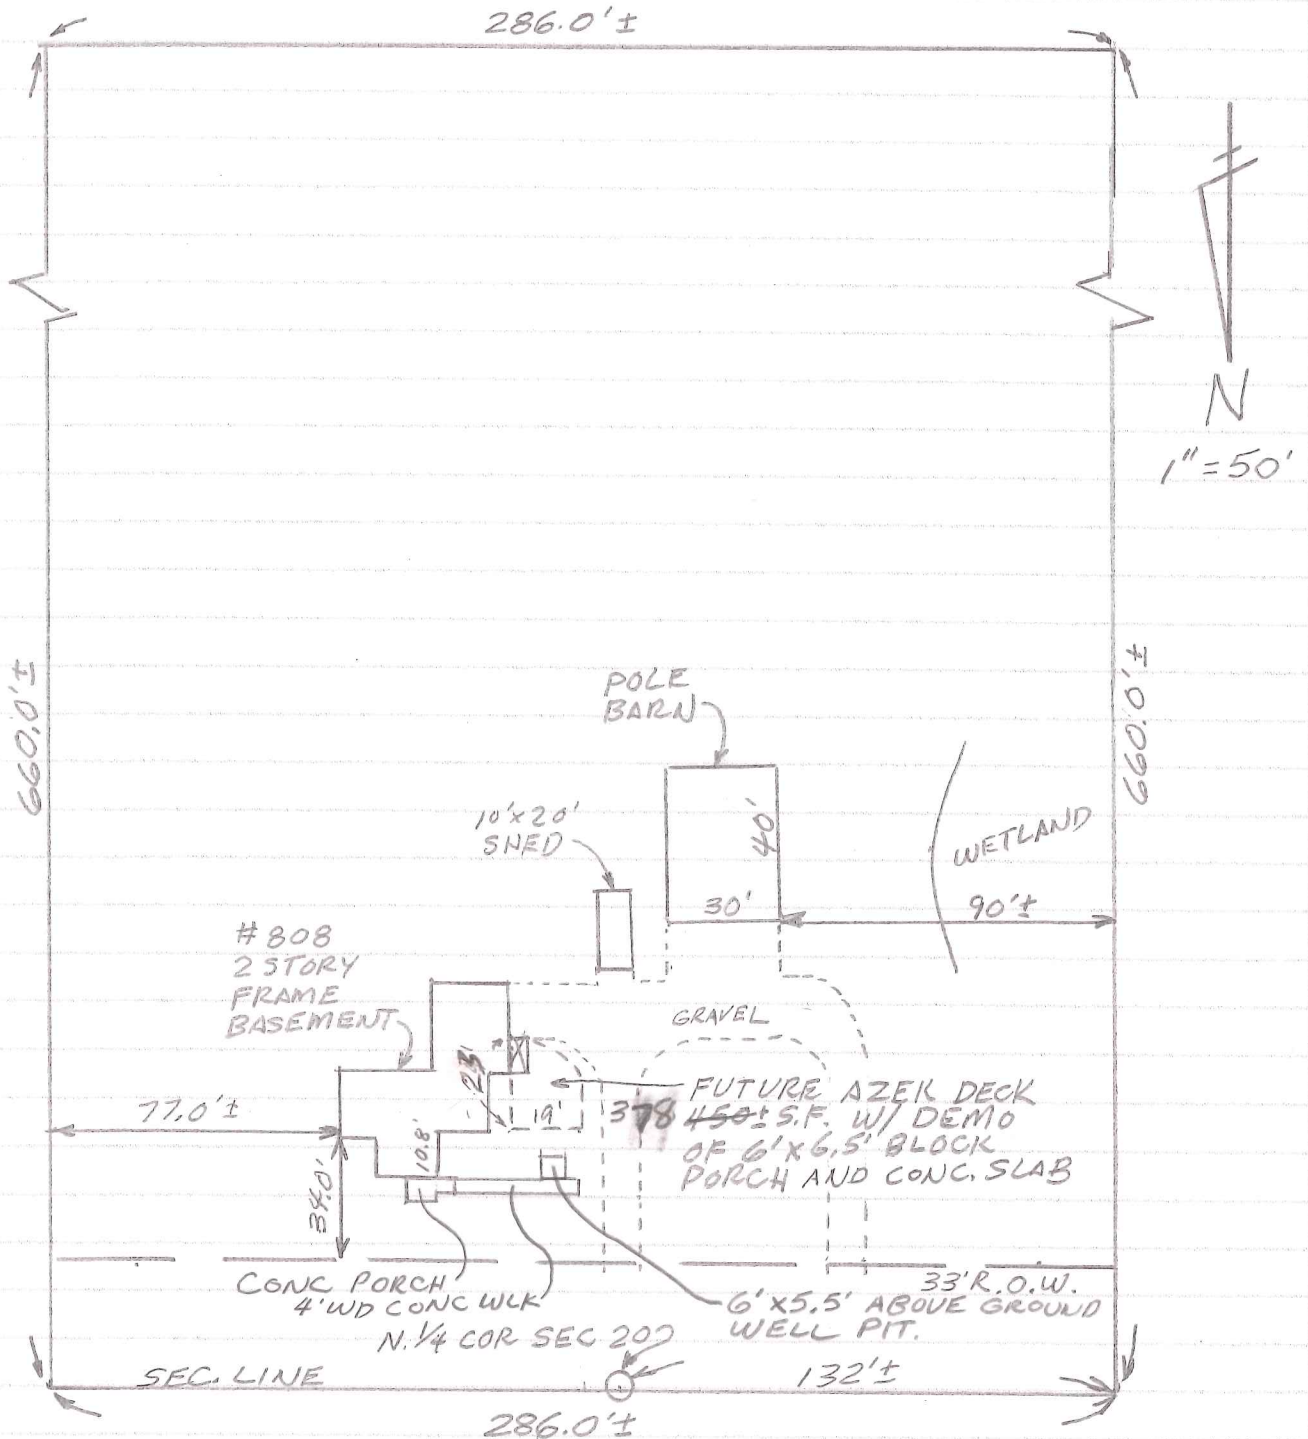 286.0'±
N
1"=50'
660.0'±
660.0'±
POLE
BARN
40'
30'
10'x20'
SHED
WETLAND
90'±
#808
2 STORY
FRAME
BASEMENT
GRAVEL
77.0'±
23'
19'
10.8'
34.0'
FUTURE AZEK DECK
378 450± S.F. W/ DEMO
OF 6'x6.5' BLOCK
PORCH AND CONC. SLAB
CONC PORCH
4'WD CONC WLK
33' R.O.W.
6'x5.5' ABOVE GROUND
WELL PIT.
N. 1/4 COR SEC 20
SEC. LINE
132'±
286.0'±